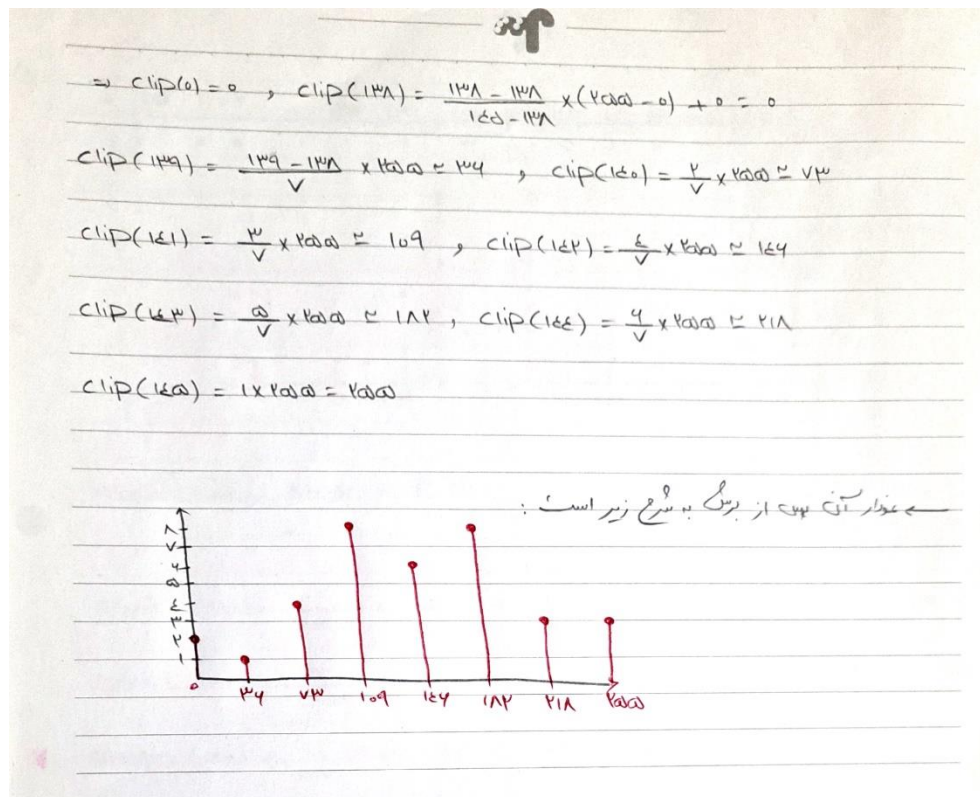 ⇒ clip(۰) = ۰ , clip(۱۳۸) = (۱۳۸ - ۱۳۸)/(۱٤۵ - ۱۳۸) × (۲۵۵ - ۰) + ۰ = ۰
clip(۱۳۹) = (۱۳۹ - ۱۳۸)/۷ × ۲۵۵ ≃ ۳۶ , clip(۱٤۰) = ۲/۷ × ۲۵۵ ≃ ۷۳
clip(۱٤۱) = ۳/۷ × ۲۵۵ ≃ ۱۰۹ , clip(۱٤۲) = ٤/۷ × ۲۵۵ ≃ ۱٤۶
clip(۱٤۳) = ۵/۷ × ۲۵۵ ≃ ۱۸۲ , clip(۱٤٤) = ۶/۷ × ۲۵۵ ≃ ۲۱۸
clip(۱٤۵) = ۱ × ۲۵۵ = ۲۵۵
← نمودار آن پس از برش به شرح زیر است :
۸
۷
۶
۵
٤
۳
۲
۱
۰ ۳۶ ۷۳ ۱۰۹ ۱٤۶ ۱۸۲ ۲۱۸ ۲۵۵